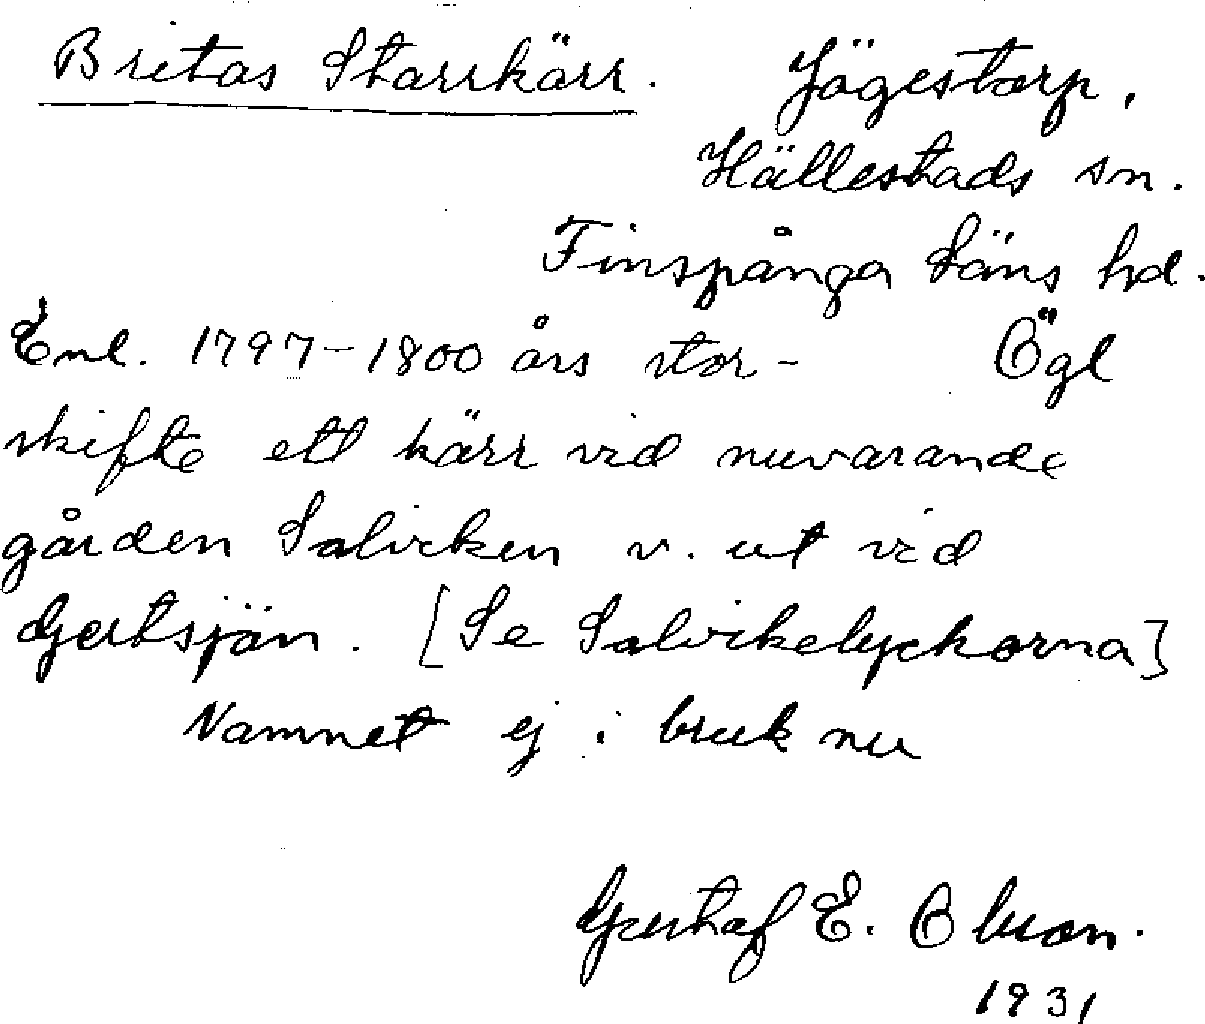 Britas Starrkärr. Jägestorp,
Hällestads sn.
Finspånga läns hd.
Enl. 1797-1800 års stor- Ögl
skifte ett kärr vid nuvarande
gården Salviken v. ut vid
sjön. [Se Salvikelyckorna]
Namnet ej i bruk nu
Gustaf E. Olson.
1931